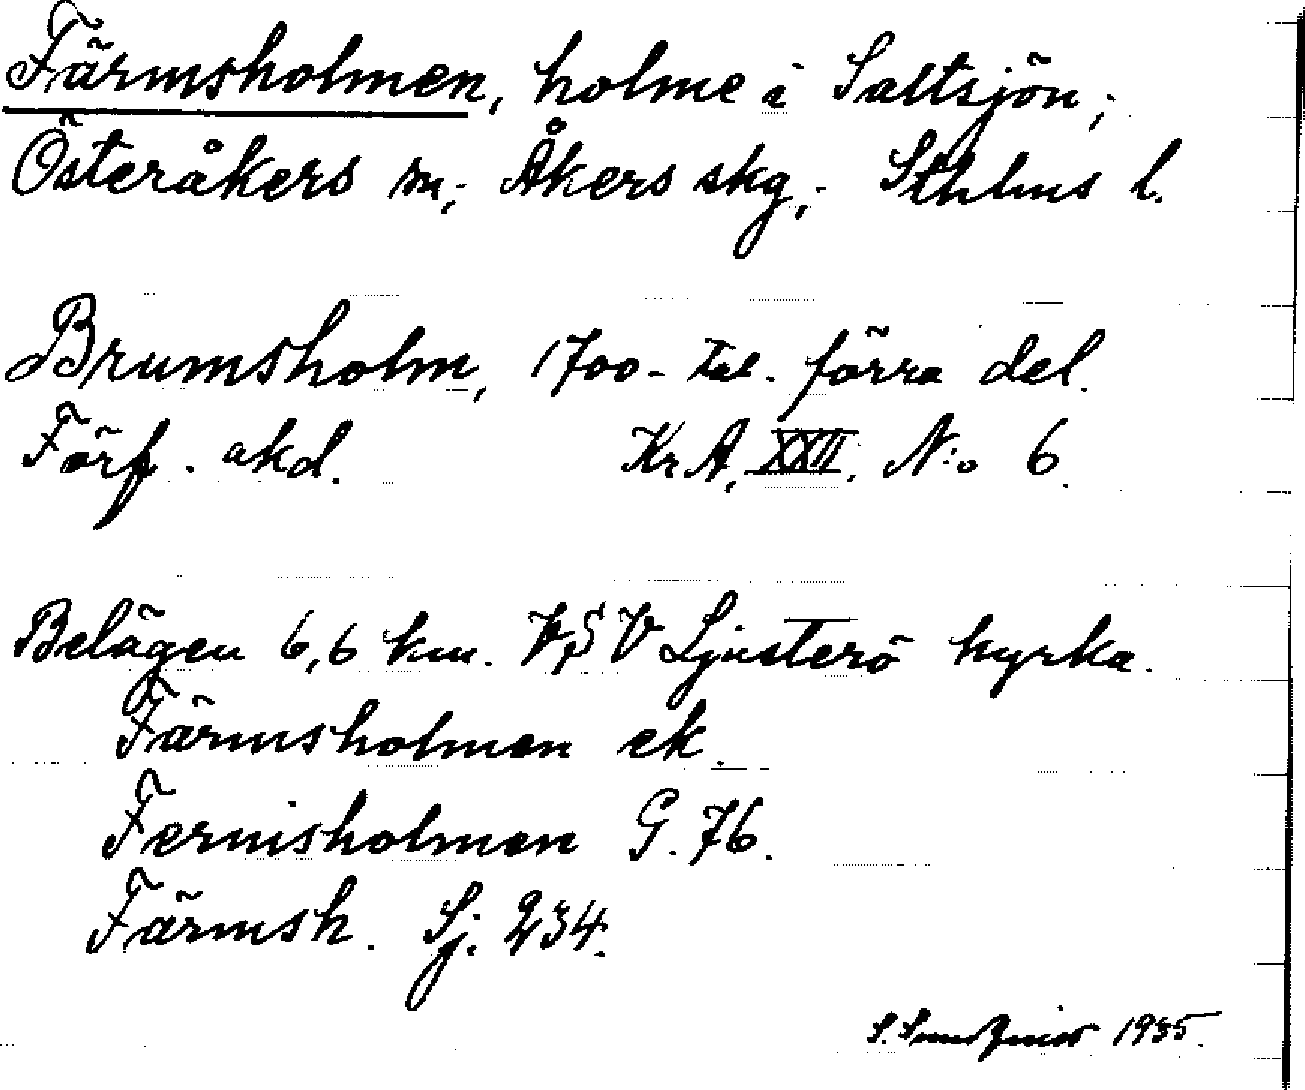 Färmsholmen, holme i Saltsjön,
Österåkers sn, Åkers skg, Sthlms l.
Brumsholm, 1700-tal. förra del.
Förf. okd. KrA, XXII, N:o 6.
Belägen 6,6 km. VSV Ljusterö kyrka.
Färmsholmen ek.
Fermsholmen G. 76.
Färmsh. Sj. 234.
S. 1935.